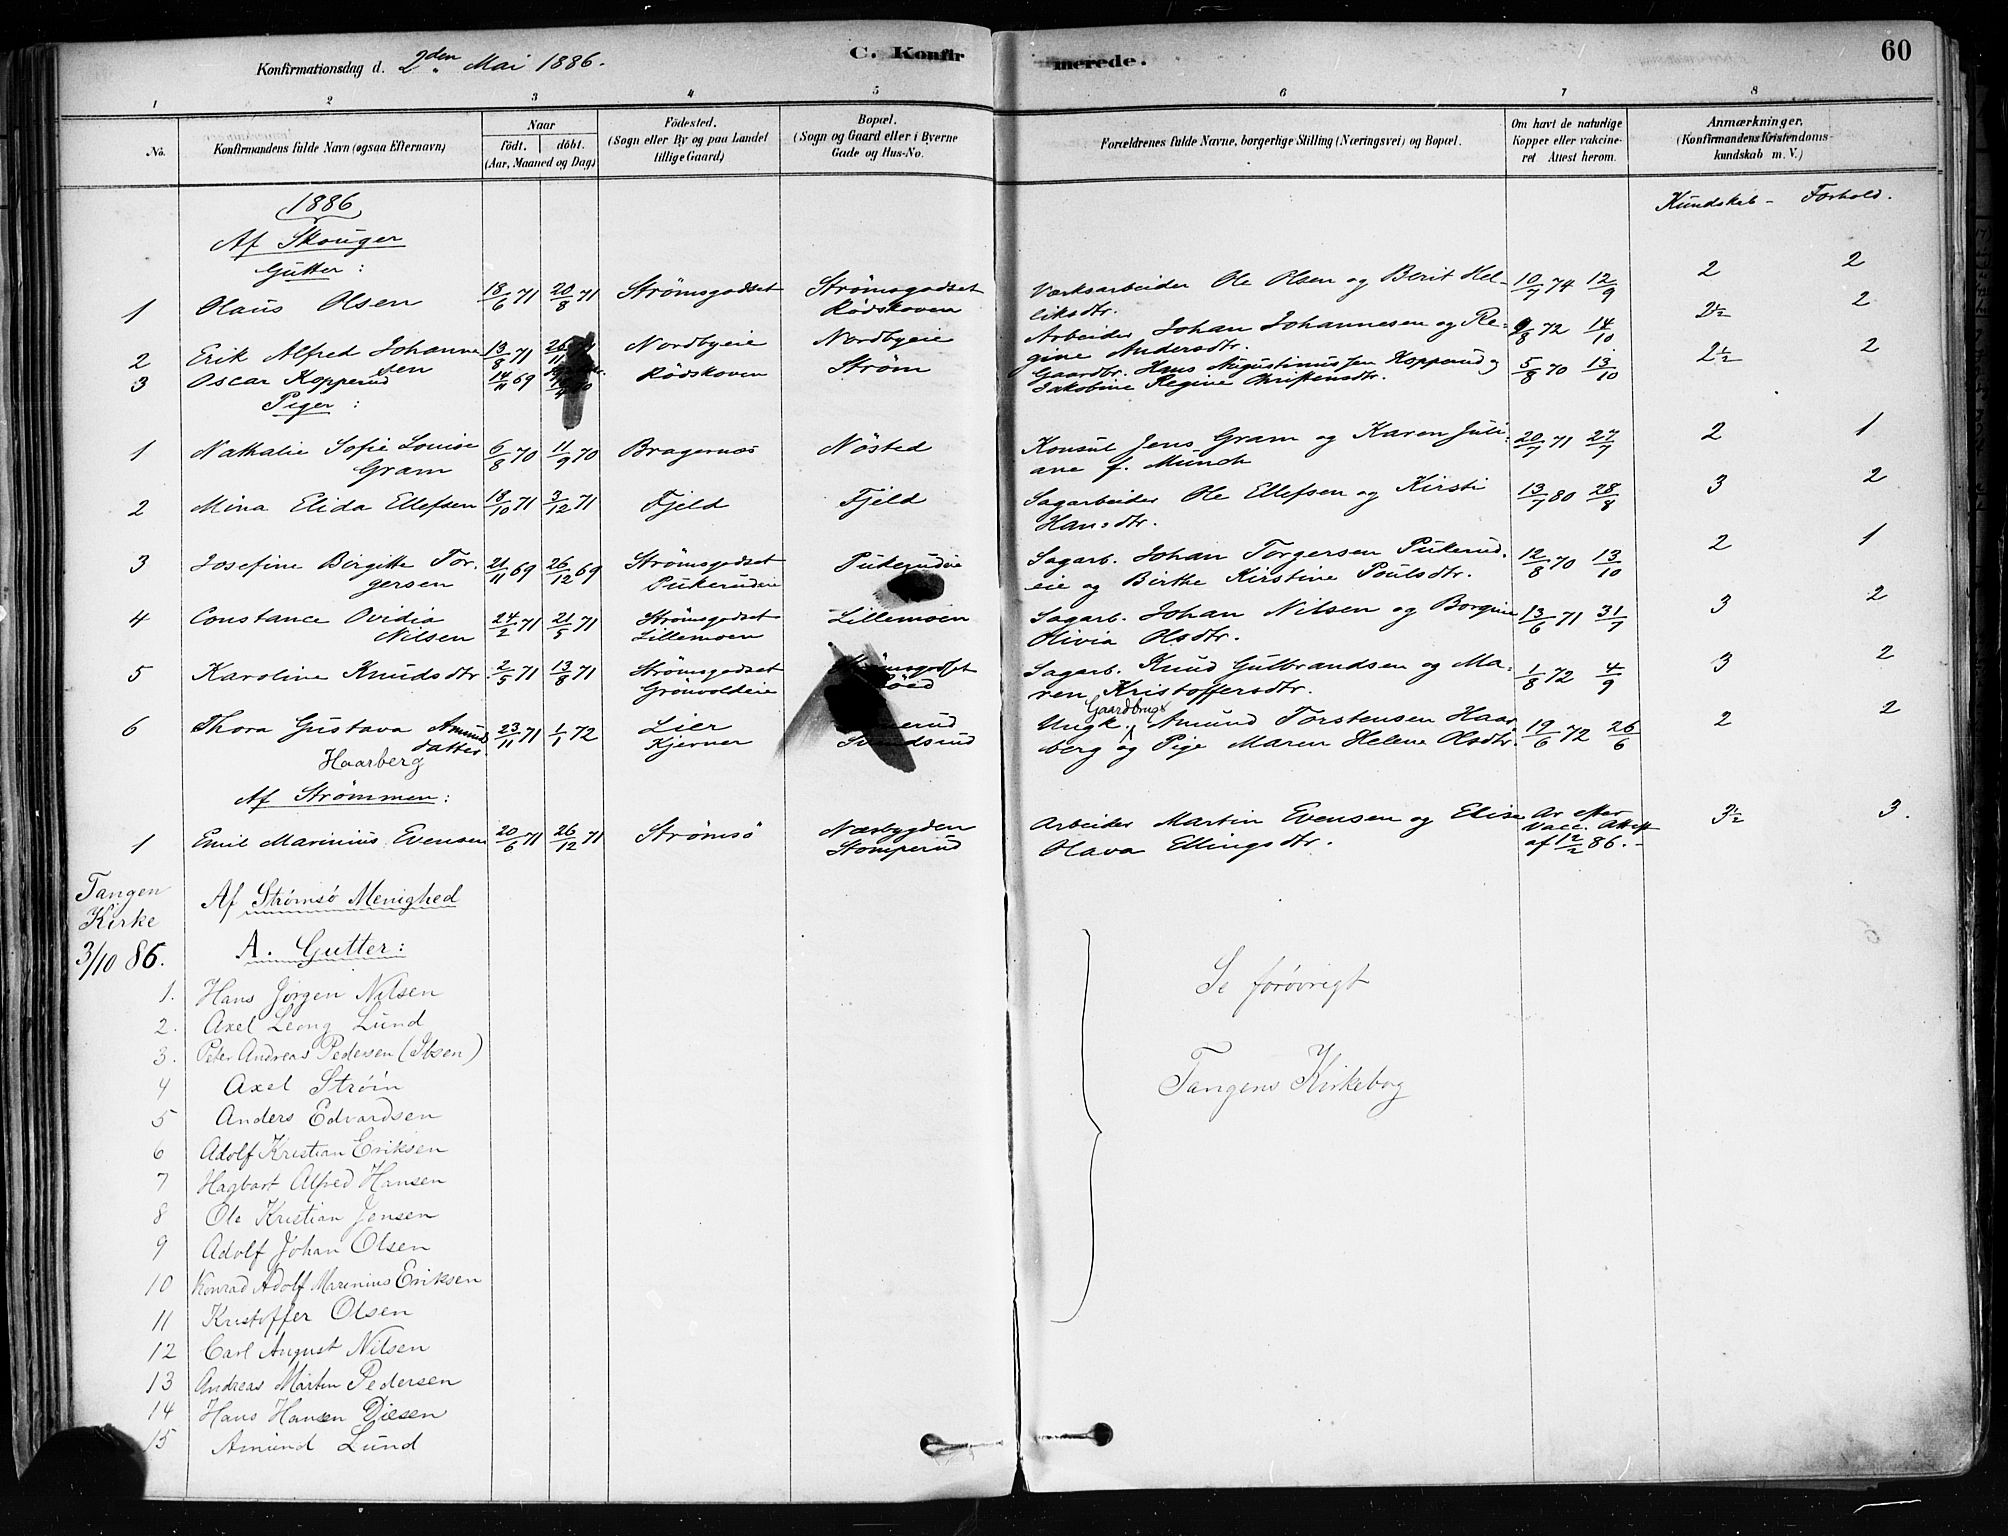 Konfirmationsdag d. 2den Mai 1886.
C. Konfirmerede.
60
1 2 3 4 5 6 7 8
No.
Konfirmandens fulde Navn (ogsaa Efternavn)
Naar
födt. döbt.
(Aar, Maaned og Dag)
Födested.
(Sogn eller By og paa Landet
tillige Gaard)
Bopæl.
(Sogn og Gaard eller i Byerne
Gade og Hus-No.
Forældrenes fulde Navne, borgerlige Stilling (Næringsvei) og Bopæl.
Om havt de naturlige
Kopper eller vakcine-
ret Attest herom.
Anmærkninger.
(Konfirmandens Kristendoms-
kundskab m. V.)
1886
Kundskab - Forhold.
Af Skouger
Gutter:
1 Olaus Olsen 18/6 71 20/8 71 Strömsgodset Strömsgodset Rödskoven Værksarbeider Ole Olsen og Berit Hel- 10/7 74 12/9 2 2
liksdtr.
2 Erik Alfred Johanne 13/8 71 Nordbyeie Nordbyeie Arbeider Johan Johannesen og Re- 72 14/10 2½ 2
sen gine Andersdtr.
3 Oscar Kopperud 14/11 69 Rödskoven Ström Gaardbr. Hans Augustinussen Kopperud og 5/8 70 13/10 2½ 2
Jakobine Regine Christensdtr.
Piger:
1 Nathalie Sofie Louise 6/8 70 11/9 70 Bragernæs Nösted Konsul Jens Gram og Karen Juli- 20/7 71 27/7 2 1
Gram ane f. Münch
2 Mina Elida Ellefsen 18/10 71 3/12 71 Fjeld Fjeld Sagarbeider Ole Ellefsen og Kirsti 13/7 80 28/8 3 2
Hansdtr.
3 Josefine Birgitte Tor- 21/11 69 26/12 69 Strömsgodset Pukerudeie Sagarb. Johan Torgersen Pukerud- 12/8 70 13/10 2 1
gersen Pukerudeie eie og Birthe Kirstine Poulsdtr.
4 Constance Ovidia 24/2 71 21/5 71 Strömsgodset Lillemoen Sagarb. Johan Nilsen og Borgine 13/6 71 31/7 3 2
Nilsen Lillemoen Olivia Olsdtr.
5 Karoline Knudsdtr. 2/5 71 13/8 71 Strömsgodset Strömsgodset Sagarb. Knud Gulbrandsen og Ma- 1/8 72 4/9 3 2
Grönvoldeie ren Kristoffersdtr.
6 Thora Gustava Amunds 23/11 71 1/1 72 Lier Ungk. Gaardbrug. Amund Torstensen Haar 19/6 72 26/6 2 2
datter Kjerner berg og Pige Maren Helene Olsdtr.
Haarberg
Af Strömmen:
1 Emil Marinius Evensen 20/6 71 26/12 71 Strömsö Nærbygden Arbeider Martin Evensen og Elise Ar efter 3½ 3.
Stomperud Olava Ellingsdtr. Vacc. Attest
af 12/2 86.-
Tangen
Kirke
3/10 86.
Af Strömsö Menighed
A. Gutter:
1. Hans Jörgen Nilsen
2. Axel Leong Lund
3. Peter Andreas Pedersen (Ibsen)
4 Axel Ströin
5 Anders Edvardsen
6 Adolf Kristian Eriksen
7 Hagbart Alfred Hansen
8 Ole Kristian Jensen
9 Adolf Johan Olsen
10 Konrad Adolf Marinius Eriksen
11 Kristoffer Olsen
12 Carl August Nilsen
13 Andreas Martin Pedersen
14 Hans Hansen Diesen
15 Amund Lund
Se forövrigt
Tangens Kirkebog